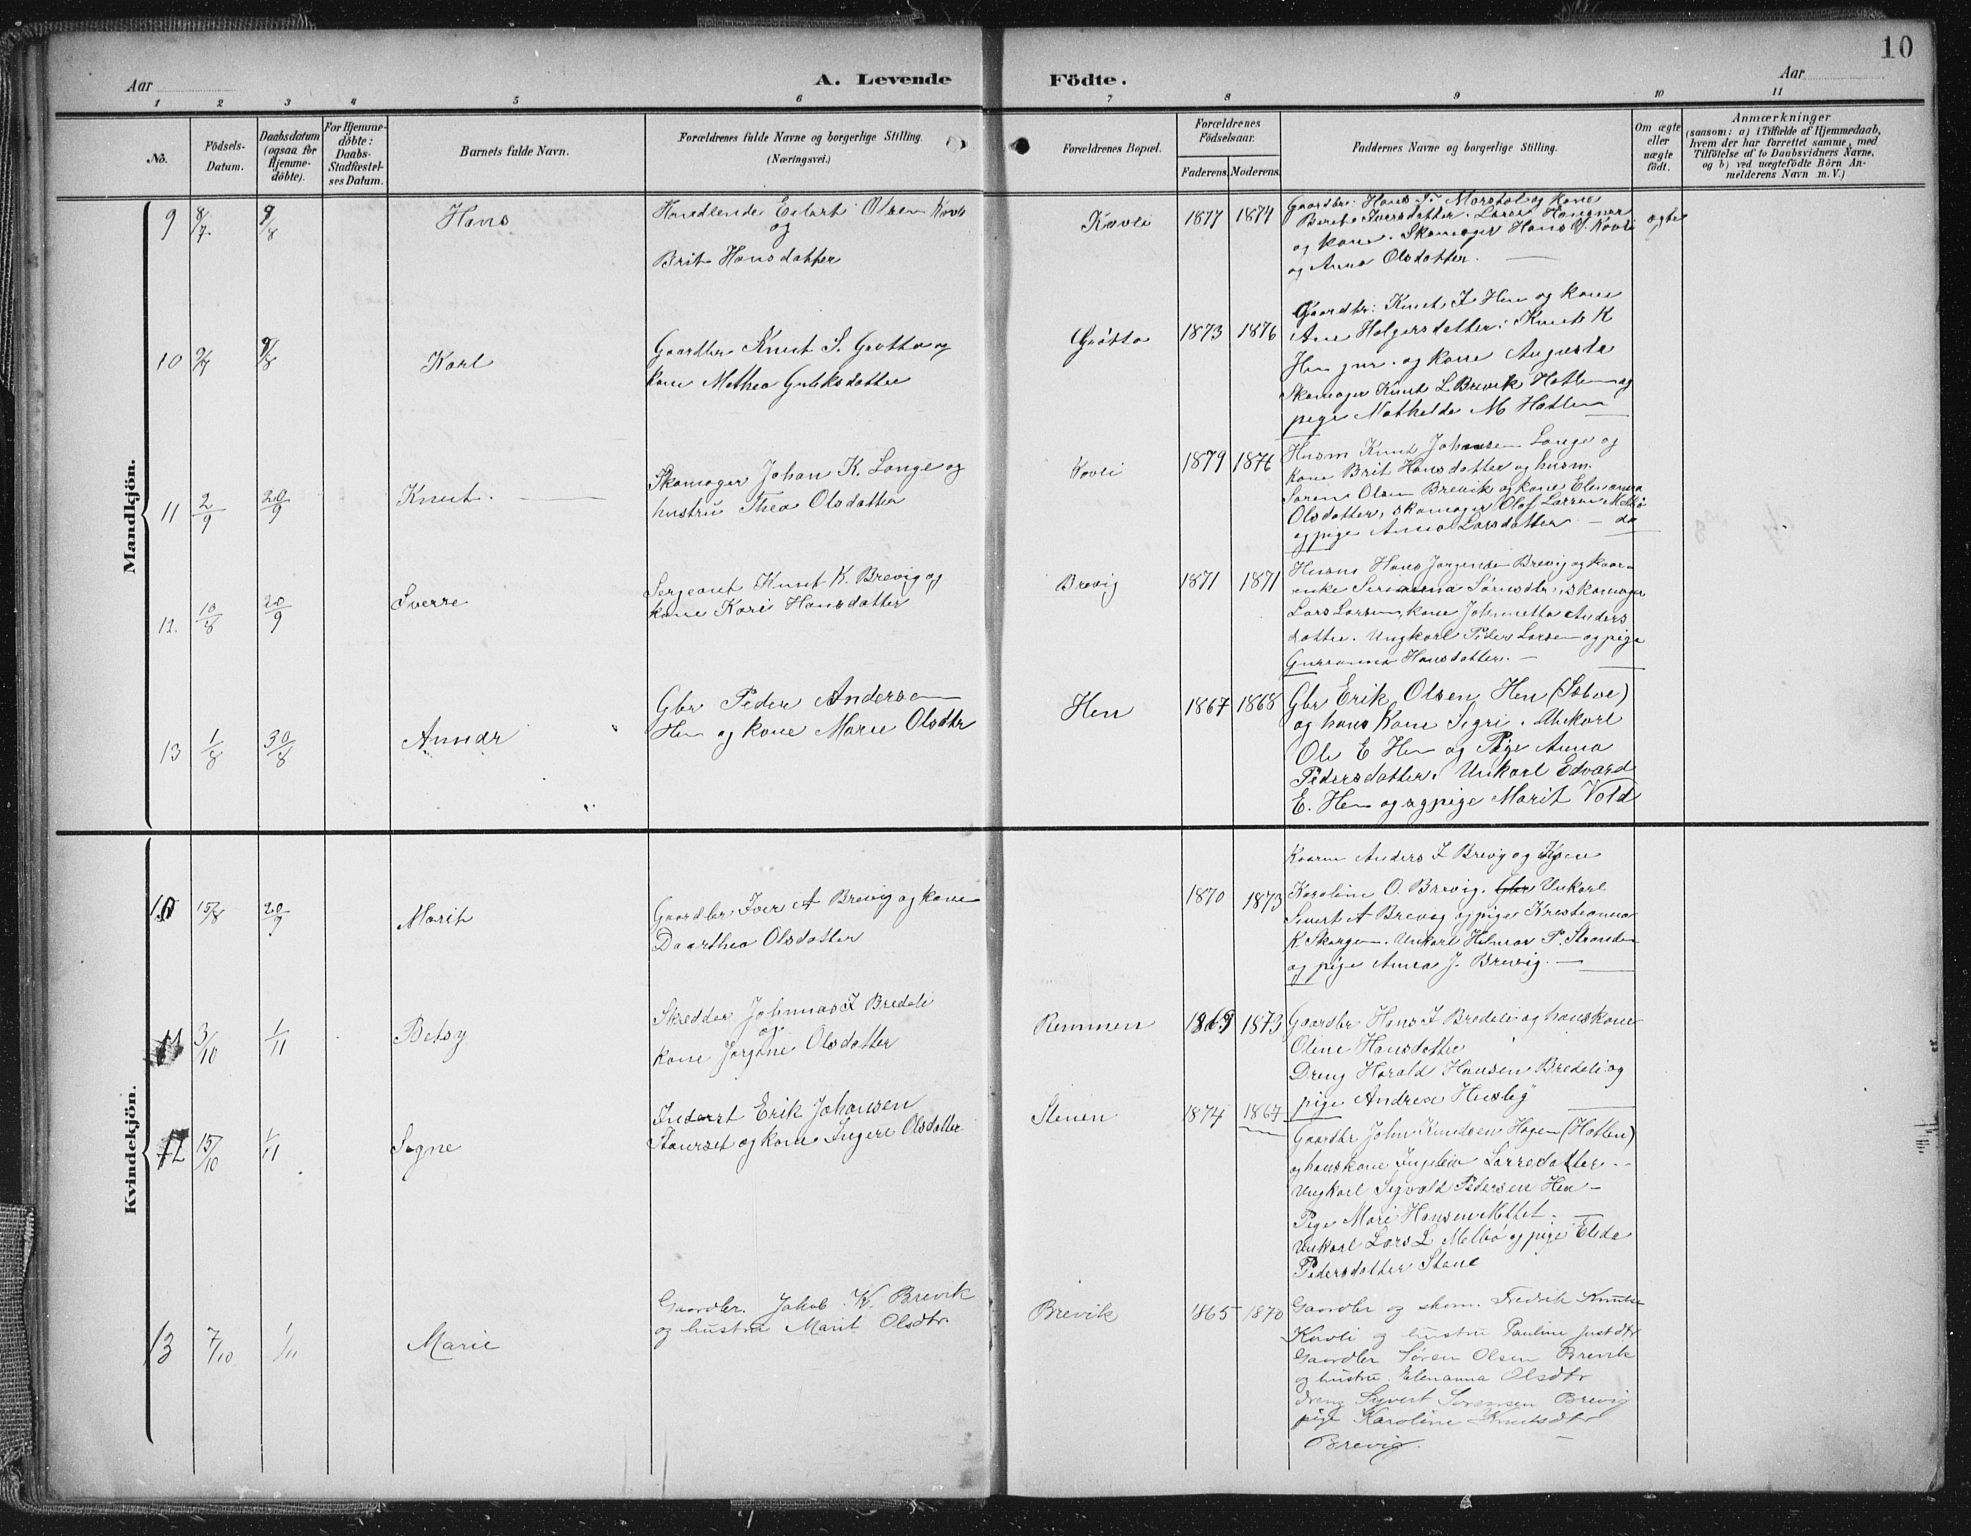 10
Aar
A. Levende
Födte.
Aar
1 2 3 4 5 6 7 8 9 10 11
No.
Födsels-Datum.
Daabsdatum (ogsaa for Hjemme-döbte).
For Hjemme-döbte: Daabs-Stadfæstel-ses Datum.
Barnets fulde Navn.
Forældrenes fulde Navne og borgerlige Stilling.
(Næringsvei.)
Forældrenes Bopæl.
Forældrenes Födselsaar.
Faderens. Moderens.
Faddernes Navne og borgerlige Stilling.
Om ægte eller uægte födt.
Anmærkninger
(saasom: a) i Tilfælde af Hjemmedaab,
hvem der har forrettet samme, med
Tilföielse af to Daabsvidners Navne,
og b) ved uægtefödte Börn An-
melderens Navn m. V.)
Mandkjön.
9 8/7 9/8 Hans
Olsen Kavli
og
Brit Hansdatter
Kavli 1877 1874
Gaardbr: Hans og kone
Berit Iversdatter. Lars
og kone. Skomager Hans Kavli
og Anna Olsdatter.
ægte
10 9/8 Karl
Gaardbr Knut S. Grøtta og
kone Mathea Guliksdatter
Grøtta 1873 1876
Gaardbr: Knut I Hen og kone
Ane Holgersdatter. Knut K
Hen gmr. og kone Augusta
Skomager Knut L Brevik Hatlen og
pige Mathilde M Hatlen
11 2/9 20/9 Knut.
Skomager Johan K. Lange og
hustru Thea Olsdatter
Kavli 1879 1876
Husm Knut Johansen Lange og
kone Brit Hansdatter og husm.
Søren Olsen Brevik og kone Elenanna
Olsdatter, skomager Olof Larsen Melbø
og pige Anna Larsdatter — do
12. 10/8 20/9 Sverre
Sergeant Knut K. Brevig og
kone Kari Hansdatter
Brevig 1871 1871
Husm Hans Jørgensen Brevig og kaar-
enke Serianna Sørensdtr, skomager
Lars Larsen, kone Johnetta Anders
datter. Ungkarl Peder Larsen og pige
Gurianna Hansdatter. —
13 1/8 30/8 Annar
Gbr Peder Andersen
Hen og kone Marie Olsdtr
Hen 1867 1868
Gbr Erik Olsen Hen
og hans Kone Segri. Unkarl
Ole E Hen og Pige Anna
Pedersdatter. Unkarl Edvard
E. Hen og pige Marit Vold
Kvindekjön.
10 15/8 20/9 Marit
Gaardbr Iver A Brevig og kone
Daarthea Olsdatter
1870 1873
Kaarm Anders I Brevig og Kone
Karoline O. Brevig. Gbr Unkarl
Sivert A Brevig og pige Kristianna
K. Skorgen. Unkarl Helmar P. Stranden
og pige Anna J. Brevig. —
11 3/10 1/11 Betsy
Skredder Johnnas I Bredeli
og
kone Jørgine Olsdatter
Remmen 1869 1873
Gaardbr Hans I Bredeli og hans kone
Oline Hansdatter
Dreng Harald Hansen Bredeli og
pige Andrea Husby
12 15/10 1/11 Sogne
Inderst Erik Johansen
Staurset og kone Ingeri Olsdatter
Stenen 1874 1867
Gaardbr John Knudsen Hagen (Hatlen)
og hans kone Ingeleiv Larsedatter.
Ungkarl Sigvald Pedersen Hen –
Pige Mari Hansen Mittet.
Unkarl Lars L Melbø og pige Elida
Pedersdatter Stane
13 7/10 1/11 Marie
Gaardbr. Jakob K. Brevik
og hustru Marit Olsdtr
Brevik 1865 1870
Gaardbr og skom. Fredrik Knuts.
Kavli og hustru Pauline Justdtr
Gaardbr Søren Olsen Brevik
og hustru Elenanna Olsdtr
dreng Syvert Sørensen Brevig
pige Karoline Knutsdtr
Brevig.